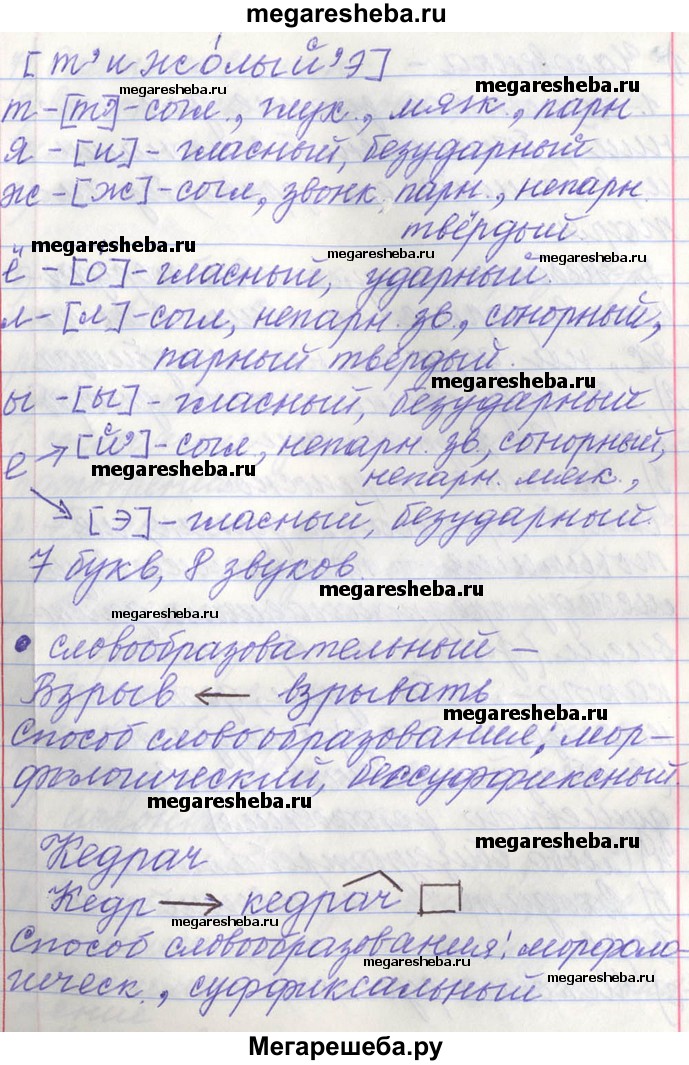 megaresheba.ru
[т'ижо́лый'э]
т-[т']-согл., глух., мяжк., парн.
я-[и]-гласный, безударный
ж-[ж]-согл, звонк, парн., непарн.
твёрдый.
megaresheba.ru
megaresheba.ru
megaresheba.ru
ё-[о́]-гласный, ударный.
л-[л]-согл, непарн. зв., сонорный,
парный твёрдый.
megaresheba.ru
ы-[ы]-гласный, безударный
е → [й']-согл, непарн. зв, сонорный,
megaresheba.ru
непарн. мяк.,
→ [э]-гласный, безударный.
7 букв, 8 звуков.
megaresheba.ru
megaresheba.ru
• словообразовательный –
Взрыв ← взрывать
megaresheba.ru
Способ словообразования: мор-
фологический, бессуффиксный.
megaresheba.ru
megaresheba.ru
Кедрач
Кедр → кедрач
megaresheba.ru
Способ словообразования: морфоло-
megaresheba.ru
megaresheba.ru
гическ., суффиксальный
Мегарешеба.ру